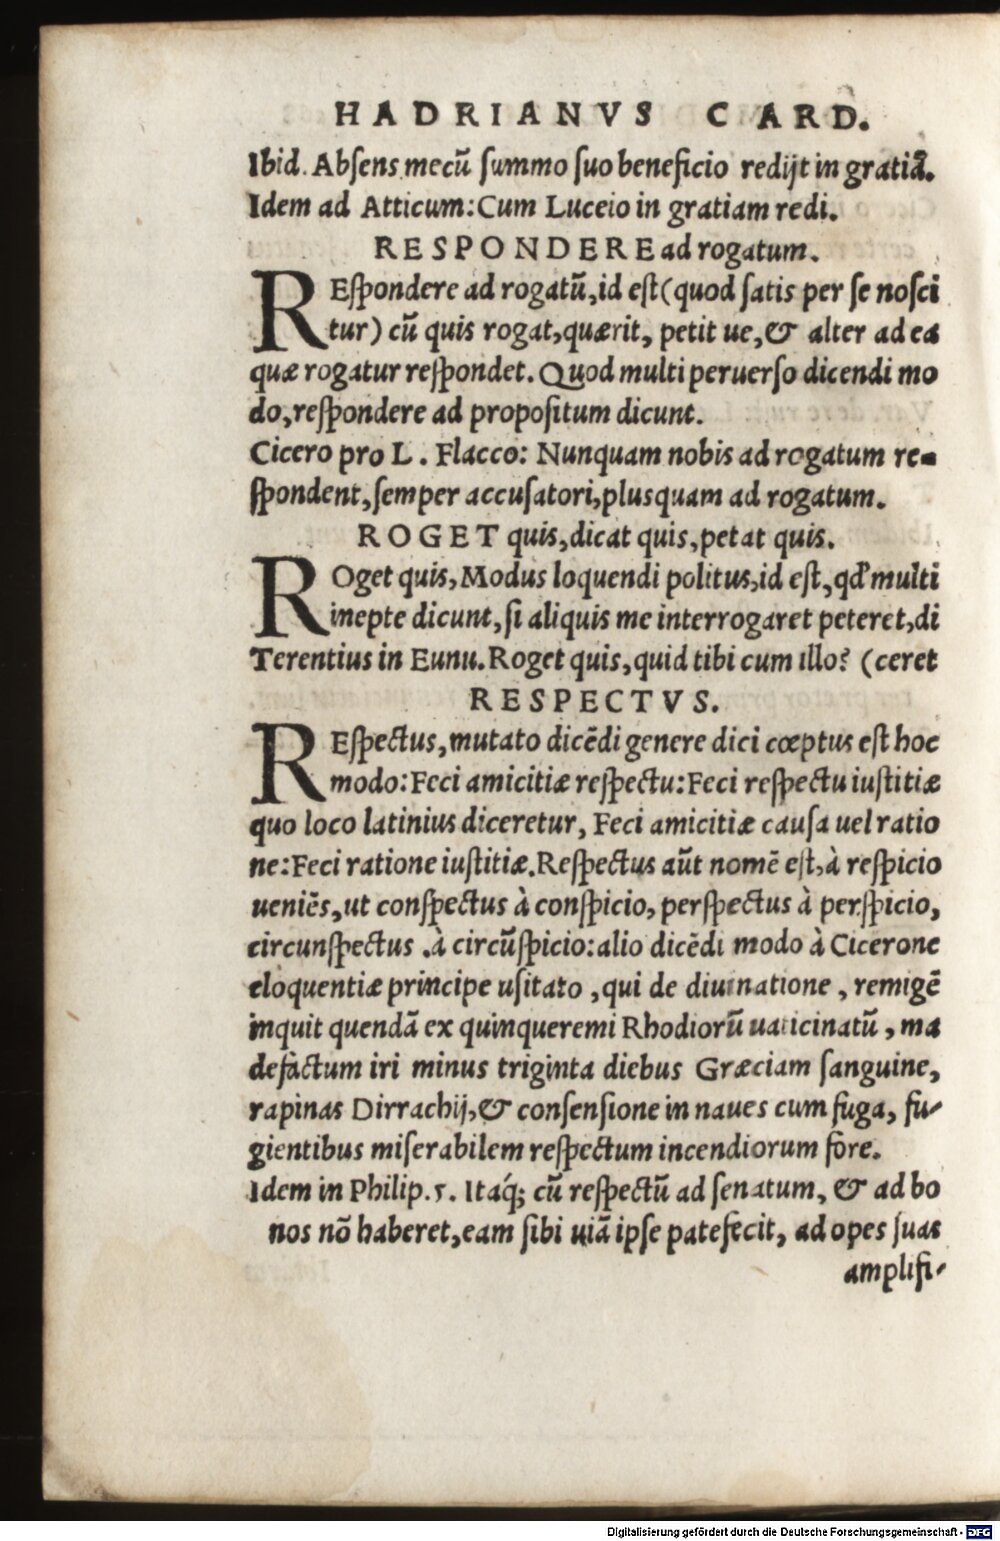 HADRIANVS CARD.
Ibid. Absens mecũ summo suo beneficio redijt in gratiã.
Idem ad Atticum: Cum Luceio in gratiam redi.
RESPONDERE ad rogatum.
REspondere ad rogatũ, id est (quod satis per se nosci
tur) cũ quis rogat, quærit, petit ue, & alter ad ea
quæ rogatur respondet. Quod multi peruerso dicendi mo
do, respondere ad propositum dicunt.
Cicero pro L. Flacco: Nunquam nobis ad rogatum re-
spondent, semper accusatori, plusquam ad rogatum.
ROGET quis, dicat quis, petat quis.
ROget quis, Modus loquendi politus, id est, qđ multi
inepte dicunt, si aliquis me interrogaret peteret, di
Terentius in Eunu. Roget quis, quid tibi cum illo? (ceret
RESPECTVS.
REspectus, mutato dicẽdi genere dici cœptus est hoc
modo: Feci amicitiæ respectu: Feci respectu iustitiæ
quo loco latinius diceretur, Feci amicitiæ causa uel ratio
ne: Feci ratione iustitiæ. Respectus aũt nomẽ est, à respicio
ueniẽs, ut conspectus à conspicio, perspectus à perspicio,
circunspectus .à circũspicio: alio dicẽdi modo à Cicerone
eloquentiæ principe usitato, qui de diuinatione, remigẽ
inquit quendã ex quinqueremi Rhodiorũ uaticinatũ, ma
defactum iri minus triginta diebus Græciam sanguine,
rapinas Dirrachij, & consensione in naues cum fuga, fu-
gientibus miserabilem respectum incendiorum fore.
Idem in Philip. 5. Itaq́; cũ respectũ ad senatum, & ad bo
nos nõ haberet, eam sibi uiã ipse patefecit, ad opes suas
amplifi-
Digitalisierung gefördert durch die Deutsche Forschungsgemeinschaft - DFG